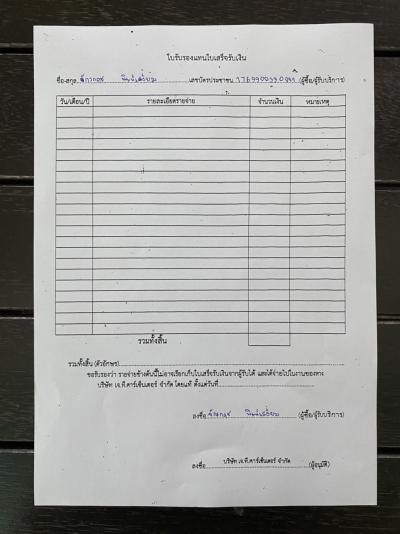 ใบรับรองแทนใบเสร็จรับเงิน
ชื่อ-สกุล เลขบัตรประชาชน (ผู้ซื้อ/ผู้รับบริการ)
วัน/เดือน/ปี รายละเอียดรายจ่าย จำนวนเงิน หมายเหตุ
รวมทั้งสิ้น
รวมทั้งสิ้น (ตัวอักษร)
ขอรับรองว่า รายจ่ายข้างต้นนี้ไม่อาจเรียกเก็บใบเสร็จรับเงินจากผู้รับได้ และได้จ่ายไปในงานของทาง
บริษัท เจ.ที.คาร์เซ็นเตอร์ จำกัด โดยแท้ ตั้งแต่วันที่
ลงชื่อ (ผู้ซื้อ/ผู้รับบริการ)
บริษัท เจ.ที.คาร์เซ็นเตอร์ จำกัด
ลงชื่อ (ผู้อนุมัติ)